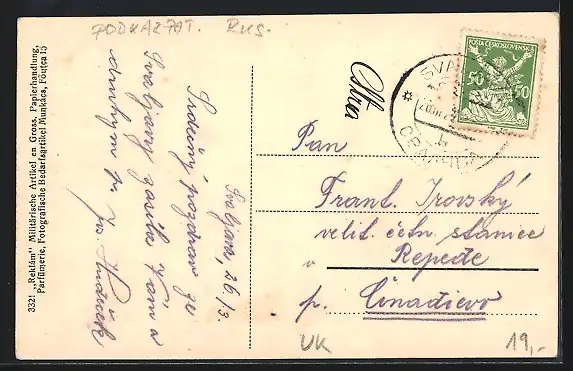 PODKARPAT. RUS.
3321 „Reklám" Militärische Artikel en Gross, Papierhandlung,
Parfümerie, Fotografische Bedarfsartikel Munkács, Főutca 15
Svaljava, 26/3.
Srdečný pozdrav ze
Svaljavy zasílá Vám a
POŠTA ČESKOSLOVENSKÁ
50 50
SVA
Pan
Frant.
velit. četn. stanice
Repede
p. Činadievo
UK
19,-